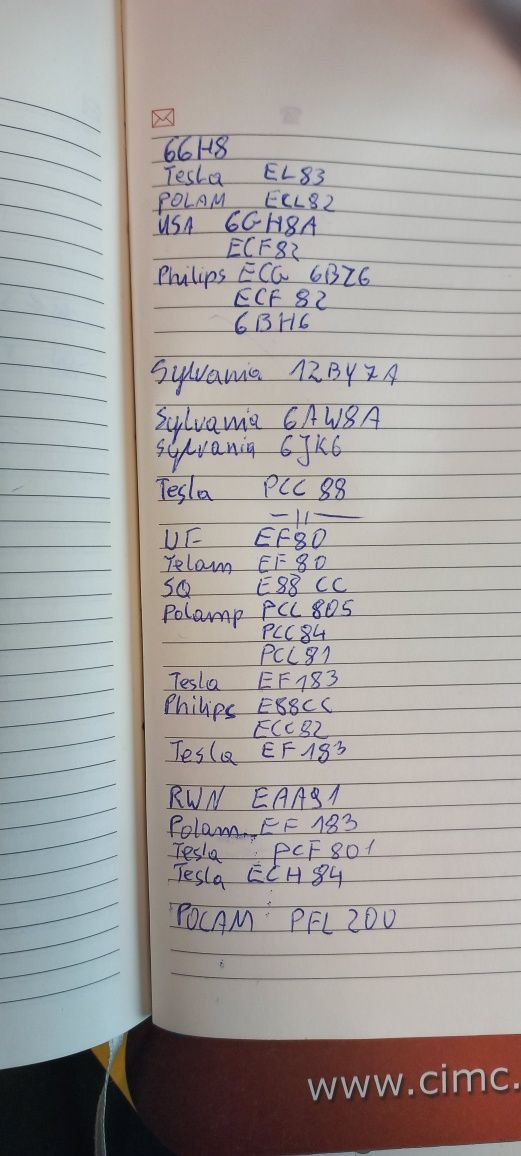 6GH8
Tesla EL83
POLAM ECL82
USA 6GH8A
ECF82
Philips ECG 6BZ6
ECF 82
6BH6
Sylvania 12BY7A
Sylvania 6AW8A
Sylvania 6JK6
Tesla PCC 88
—||—
EF80
Telam EF80
SQ E88 CC
Polamp PCL 805
PCC84
PCL81
Tesla EF183
Philips E88CC
ECC82
Tesla EF183
RWN EAA91
Polam EF 183
Tesla PCF 801
Tesla ECH 84
POLAM PFL 200
www.cimc.